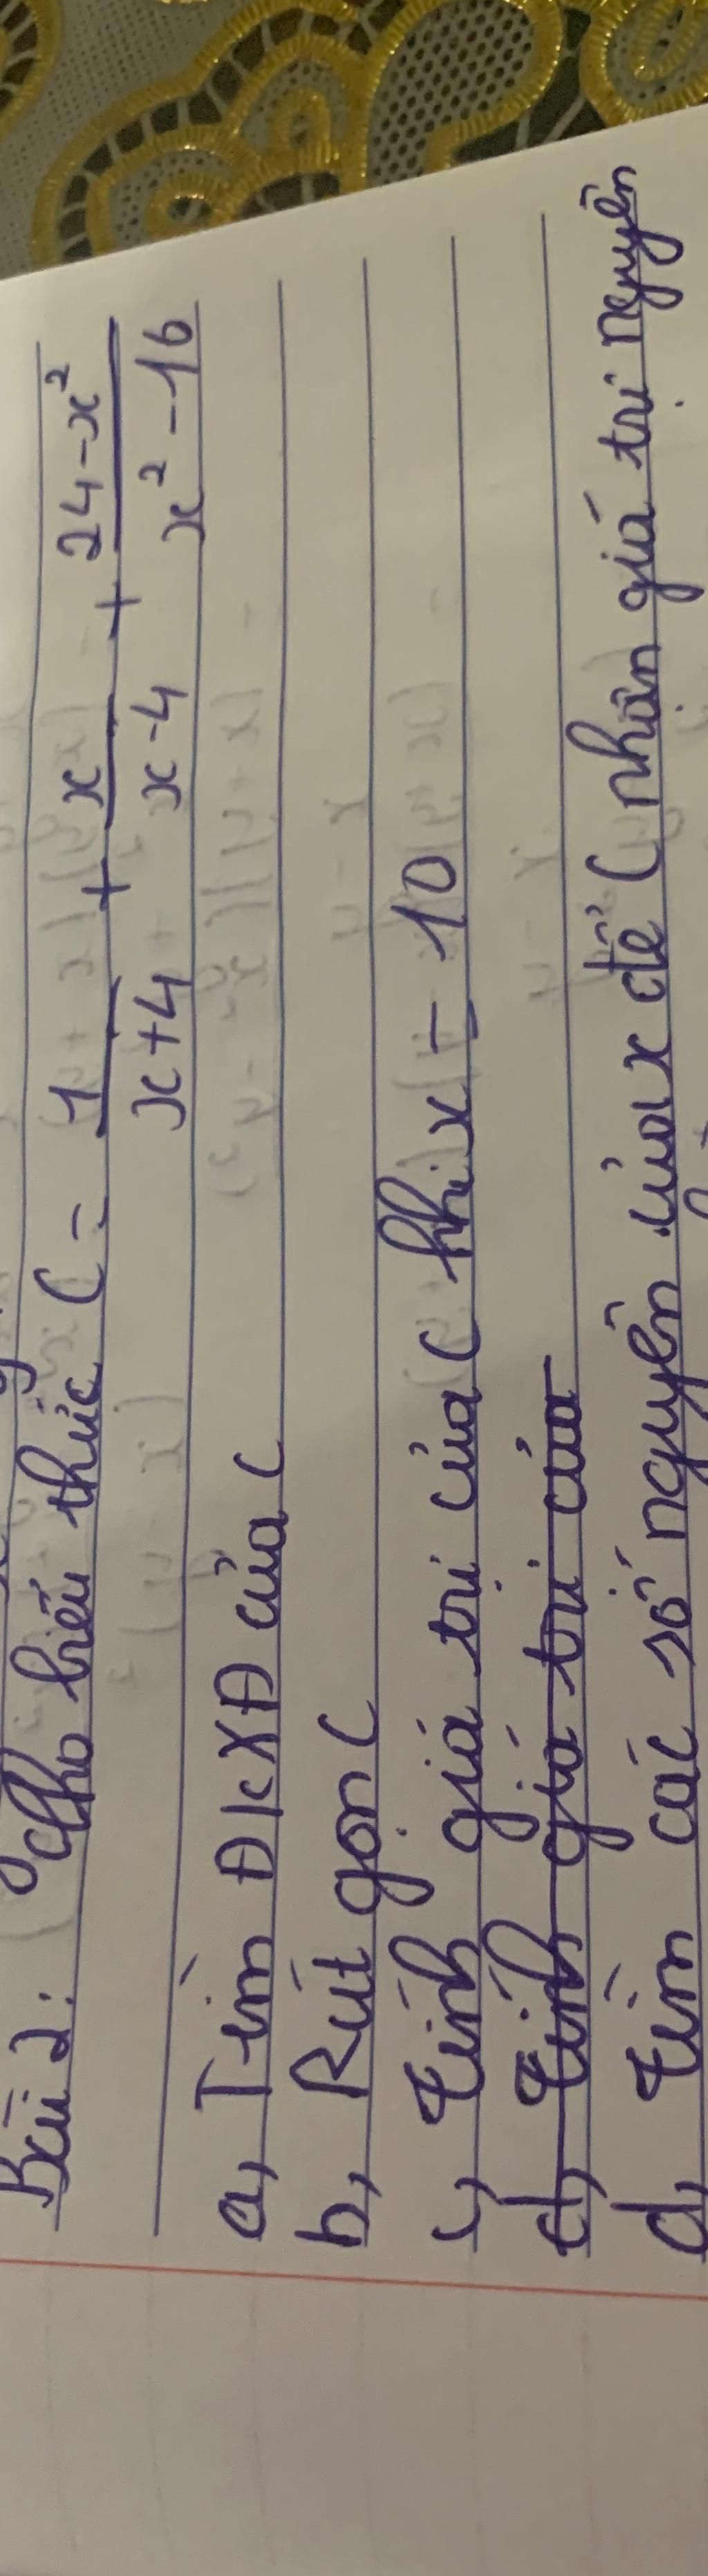 Bài 2: Cho biểu thức C = 1/(x+4) + x/(x-4) + (24-x²)/(x²-16)
a, Tìm ĐKXĐ của C
b, Rút gọn C
c, Tính giá trị của C khi x = 10
d, Tính giá trị của
d, Tìm các số nguyên của x để C nhận giá trị nguyên